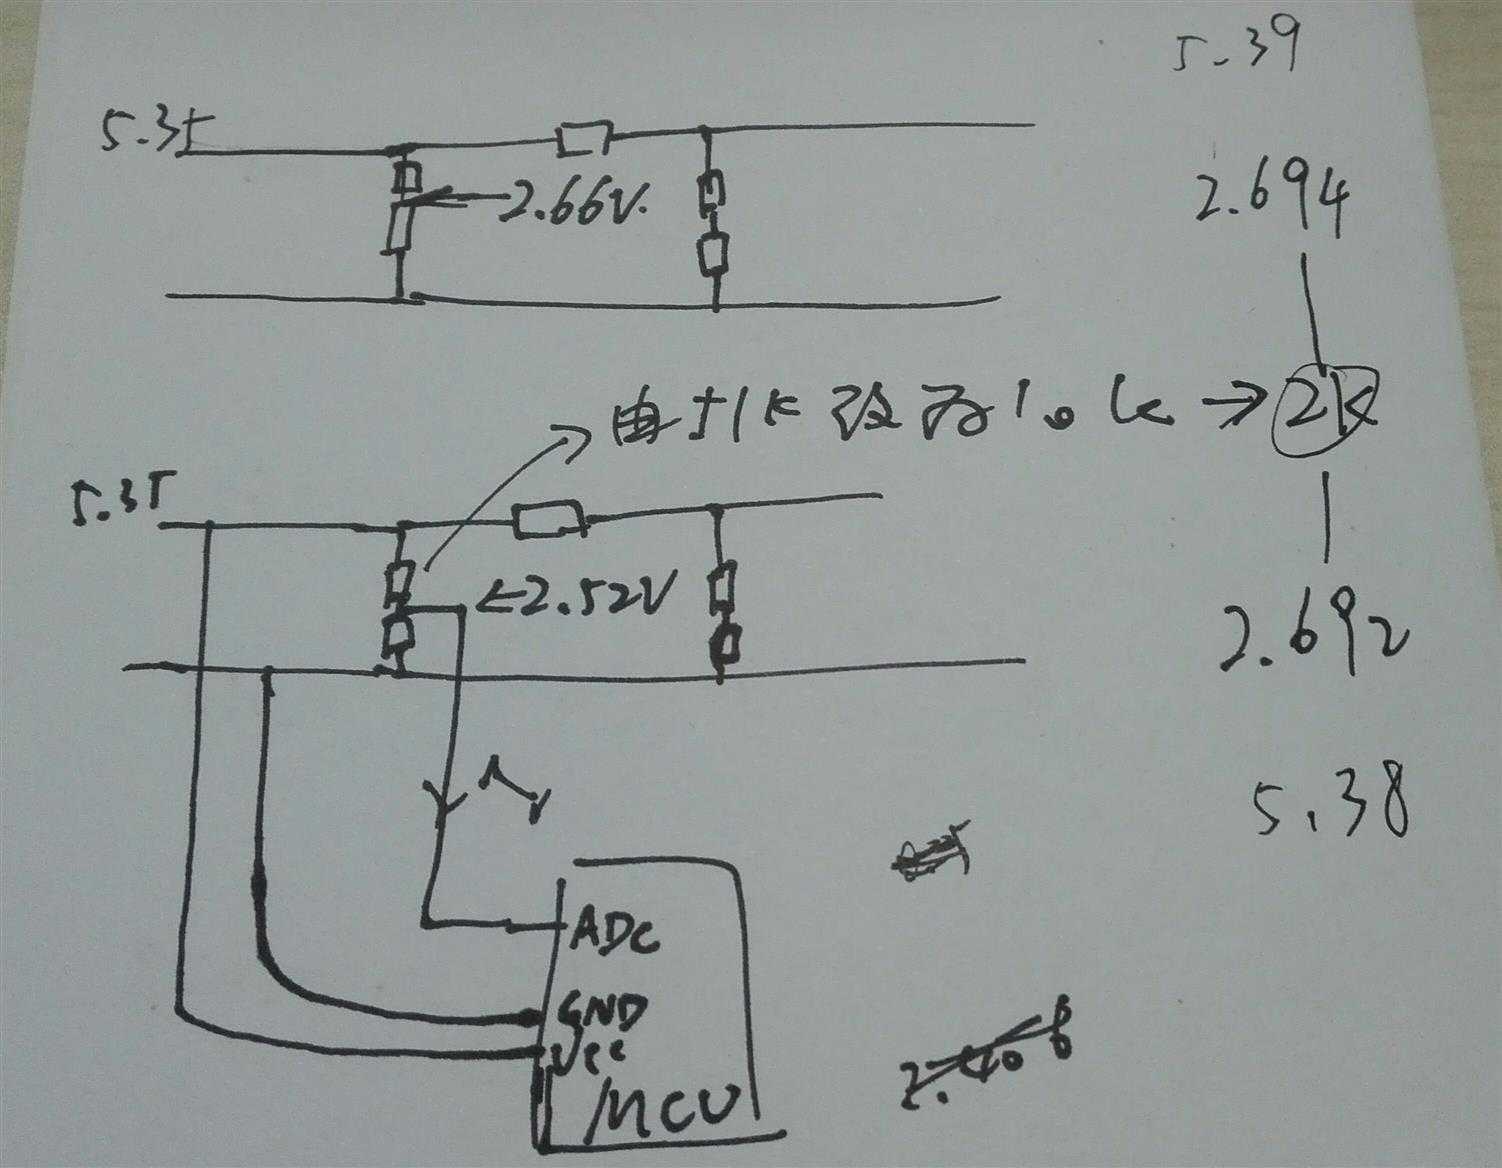 5.39
5.35
2.66V.
2.694
由51K改为10k→2K
5.35
←2.52V
2.692
5.38
ADC
GND
Vcc
MCU